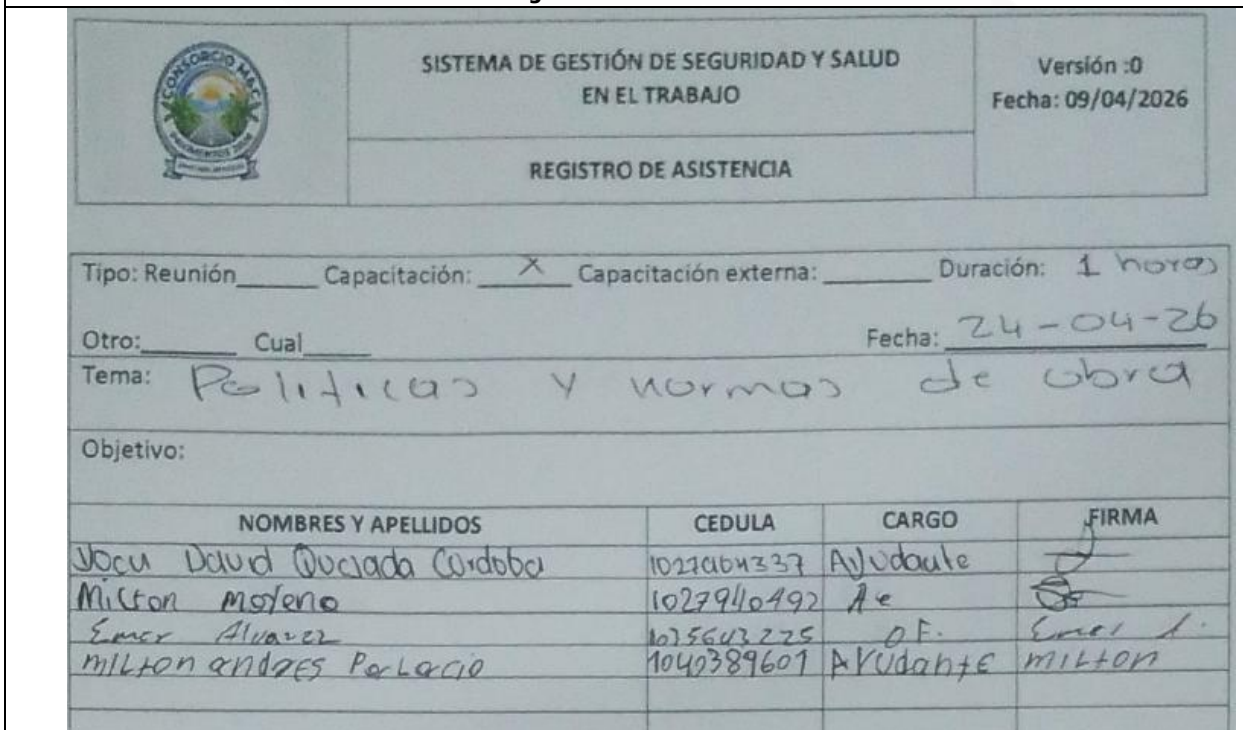 CONSORCIO M&C
SISTEMA DE GESTIÓN DE SEGURIDAD Y SALUD
EN EL TRABAJO
Versión :0
Fecha: 09/04/2026
REGISTRO DE ASISTENCIA
Tipo: Reunión______ Capacitación: __X__ Capacitación externa: ________ Duración: 1 horas
Otro:______ Cual_____ Fecha: 24-04-26
Tema: Politicas y normas de obra
Objetivo:
NOMBRES Y APELLIDOS CEDULA CARGO FIRMA
David Cordoba Ayudante
Milton Moreno 1027940492
Emer Alvarez 1035643225 OF. Emer A.
Milton andres Palacio 1040389601 AYUdante milton